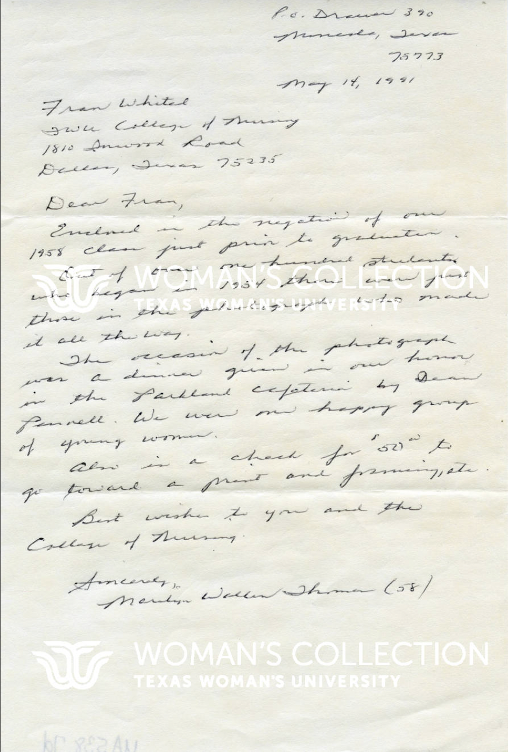 P.O. Drawer 390
Mineola, Texas
75773
May 14, 1991
Fran Whited
TWU College of Nursing
1810 Inwood Road
Dallas, Texas 75235
Dear Fran,
Enclosed is the negative of our
1958 class just prior to graduation.
Out of over one hundred students
who began in 1954 there were just
those in the photograph who made
it all the way.
The occasion of the photograph
was a dinner given in our honor
in the Parkland Cafeteria by Dean
Pannell. We were one happy group
of young women.
Also is a check for $50 to
go toward a print and framing, etc.
Best wishes to you and the
College of Nursing.
Sincerely,
Marilyn Thomas (58)
WOMAN'S COLLECTION
TEXAS WOMAN'S UNIVERSITY
WOMAN'S COLLECTION
TEXAS WOMAN'S UNIVERSITY